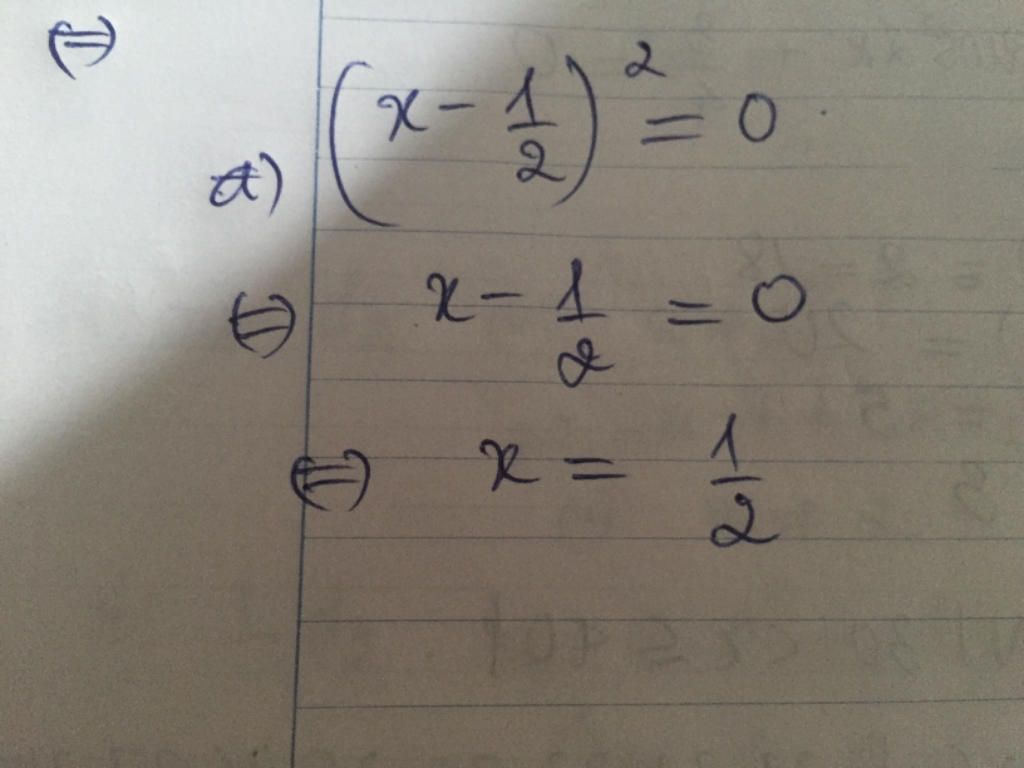 (=)
a) (x - 1/2)² = 0
(=) x - 1/2 = 0
(=) x = 1/2